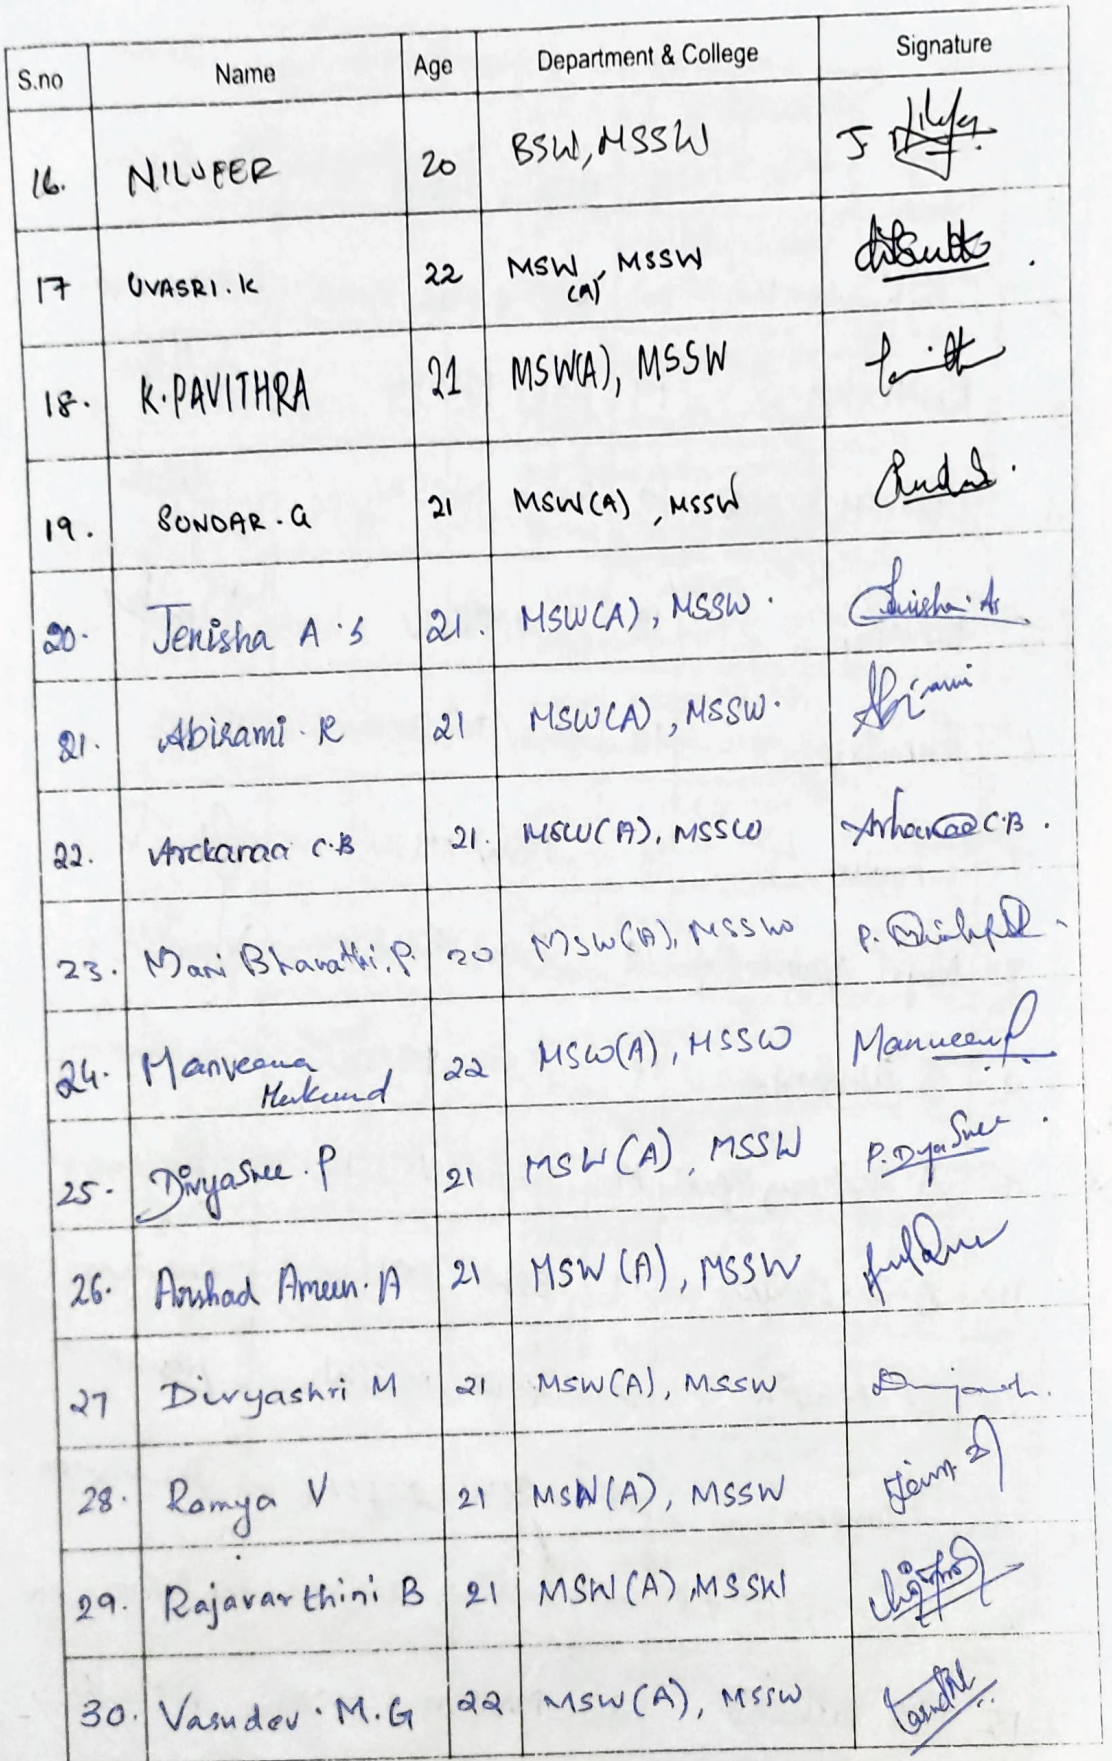 S.no Name Age Department & College Signature
16. NILUFER 20 BSW, MSSW J
17 UVASRI.K 22 MSW (A), MSSW
18. K.PAVITHRA 21 MSW(A), MSSW
19. SUNDAR.G 21 MSW(A), MSSW
20. Jenisha A.S 21. MSW(A), MSSW. Jenisha.As
21. Abirami.R 21 MSW(A), MSSW. Abirami
22. Arckanaa C.B 21. MSW(A), MSSW C.B.
23. Mani Bharathi.P. 20 MSW(A), MSSW P.
24. Manveena
Mukund 22 MSW(A), MSSW
25. DivyaSree.P 21 MSW(A), MSSW P.DyaSree
26. Arshad Ameen.A 21 MSW(A), MSSW
27 Divyashri M 21 MSW(A), MSSW
28. Ramya V 21 MSW(A), MSSW
29. Rajavarthini B 21 MSW(A), MSSW
30. Vasudev.M.G 22 MSW(A), MSSW